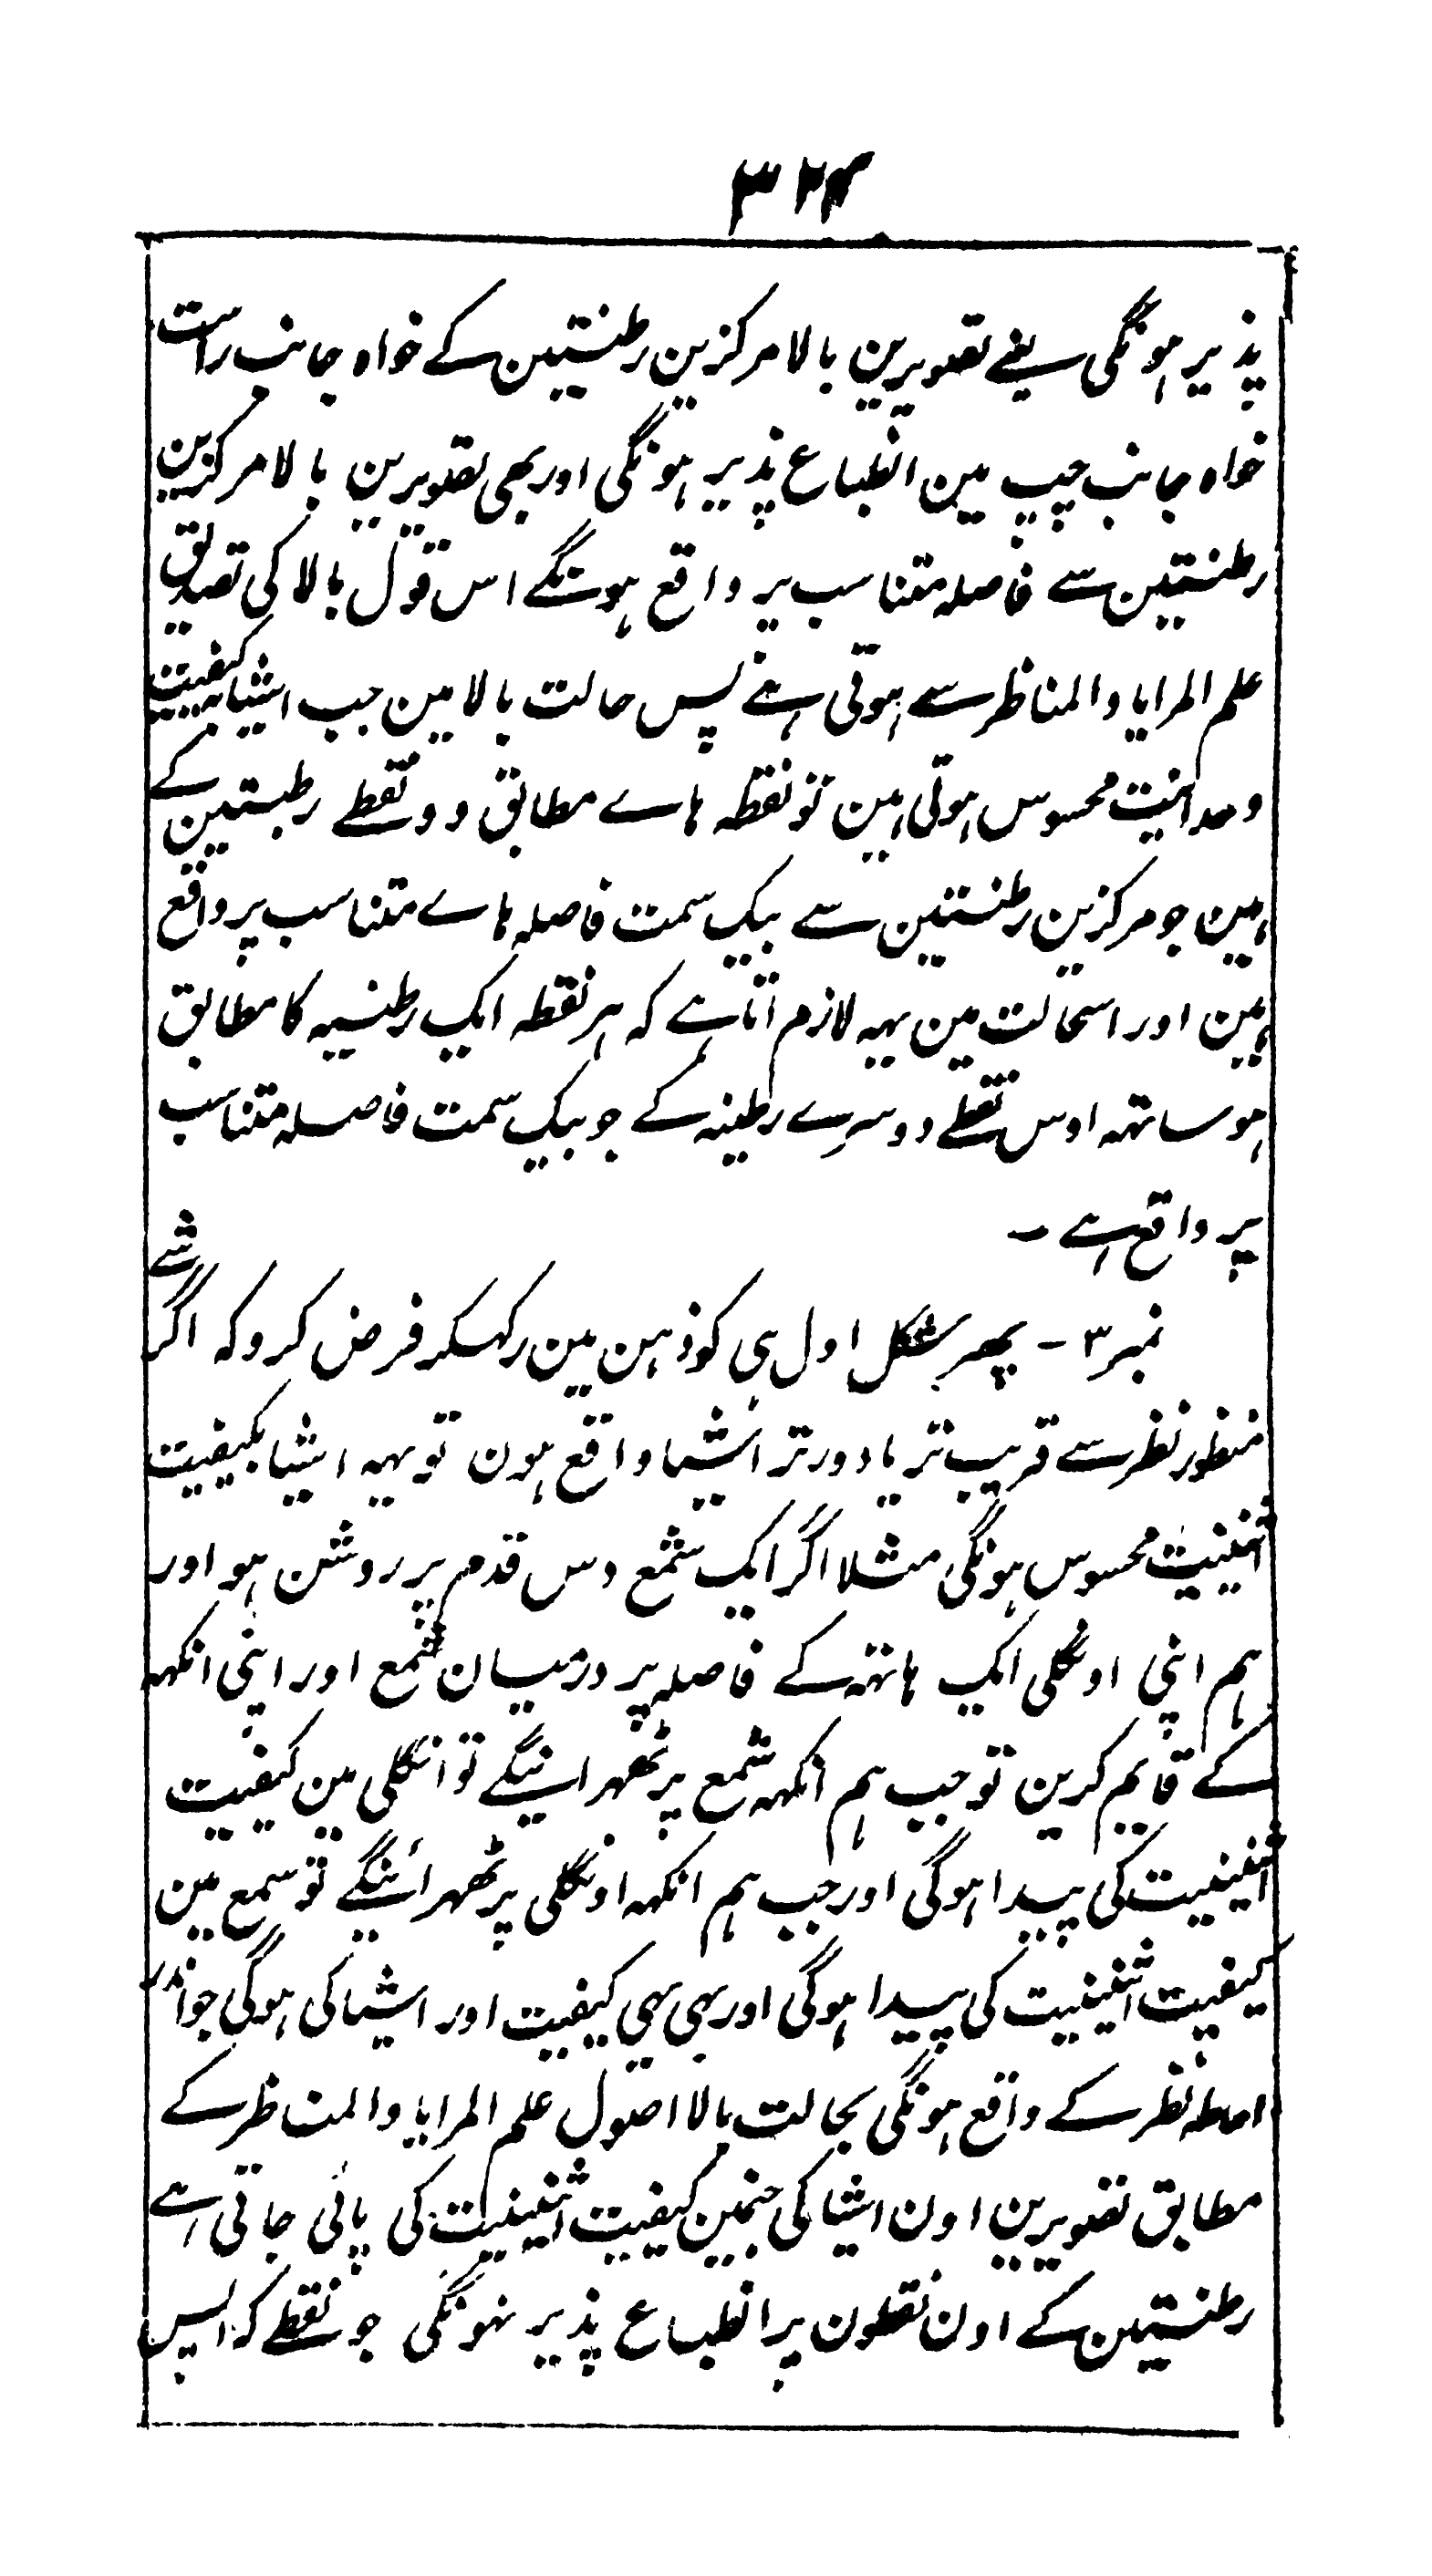 ۳۲۴
پذیر ہونگی یعنے تصویرین بالا مرکزین رطنیتین کے خواہ جانب راست
خواہ جانب چپ مین انطباع پذیر ہونگی اور بھی تصویرین بالا مرکزین
رطنیتین سے فاصلہ متناسب پر واقع ہونگے اس قول بالا کی تصدیق
علم المرایا والمناظر سے ہوتی ہے پس حالت بالا مین جب اشیا بکیفیت
وحدانیت محسوس ہوتی ہین تو نقطہ ہاے مطابق دو نقطے رطنیتین کے
ہین جو مرکزین رطنیتین سے بیک سمت فاصلہ ہاے متناسب پر واقع
ہین اور اسحالت مین یہہ لازم آتا ہے کہ ہر نقطہ ایک رطنیہ کا مطابق
ہو ساتھہ اوس نقطے دوسرے رطینہ کے جو بیک سمت فاصلہ متناسب
پر واقع ہے ۔
نمبر ۳ ۔ پھر شکل اول ہی کو ذہن مین رکھکر فرض کرو کہ اگر شے
منظور نظر سے قریب تر یا دور تر اشیا واقع ہون تو یہہ اشیا بکیفیت
اثنینیت محسوس ہونگی مثلا اگر ایک شمع دس قدم پر روشن ہو اور
ہم اپنی اونگلی ایک ہاتھہ کے فاصلہ پر درمیان شمع اور اپنی انکہہ
کے قایم کرین تو جب ہم انکہہ شمع پر ٹھہرائینگے تو انگلی مین کیفیت
اثنینیت کی پیدا ہوگی اور جب ہم انکہہ اونگلی پر ٹھہرائینگے تو شمع مین
کیفیت اثنینیت کی پیدا ہوگی اور یہی کیفیت اور اشیا کی ہوگی جو اندر
احاطہ نظر کے واقع ہونگی بحالت بالا اصول علم المرایا والمناظر کے
مطابق تصویرین اون اشیا کی جنمین کیفیت اثنینیت کی پائی جاتی ہے
رطنیتین کے اون نقطون پر انطباع پذیر نہونگی جو نقطے کہ اپس